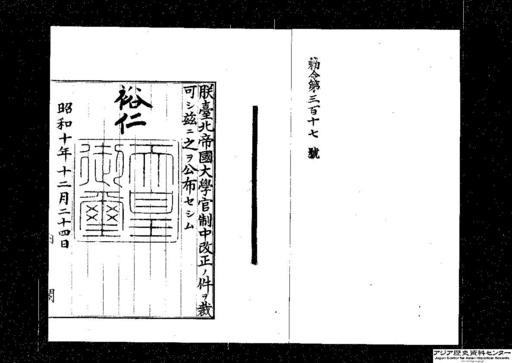 勅令第三百十七號
朕臺北帝國大學官制中改正ノ件ヲ裁
可シ茲ニ之ヲ公布セシム
裕仁
天皇御璽
昭和十年十二月二十四日
内閣
アジア歴史資料センター
Japan Center for Asian Historical Records